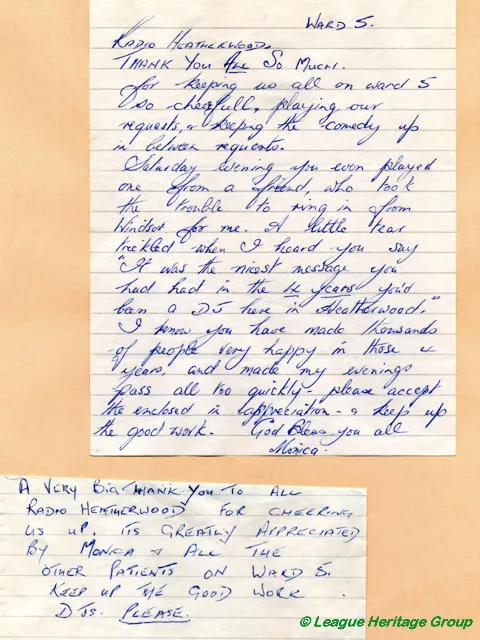 WARD 5.
RADIO HEATHERWOOD.
THANK YOU ALL SO MUCH.
for keeping us all on ward 5
so cheerfull, playing our
requests, & keeping the comedy up
in between requests.
Saturday evening you even played
one from a friend, who took
the trouble to ring in from
Windsor for me. A little tear
trickled when I heard you say
"It was the nicest message you
had had in the 4 years you'd
been a DJ here in Heatherwood."
I know you have made thousands
of people very happy in those 4
years, and made my evenings
pass all too quickly - please accept
the enclosed in appreciation - & keep up
the good work. God Bless you all
Monica.
A VERY BIG THANK YOU TO ALL
RADIO HEATHERWOOD FOR CHEERING
US UP. ITS GREATLY APPRECIATED
BY MONICA & ALL THE
OTHER PATIENTS ON WARD 5.
KEEP UP THE GOOD WORK.
DJs. PLEASE.
© League Heritage Group